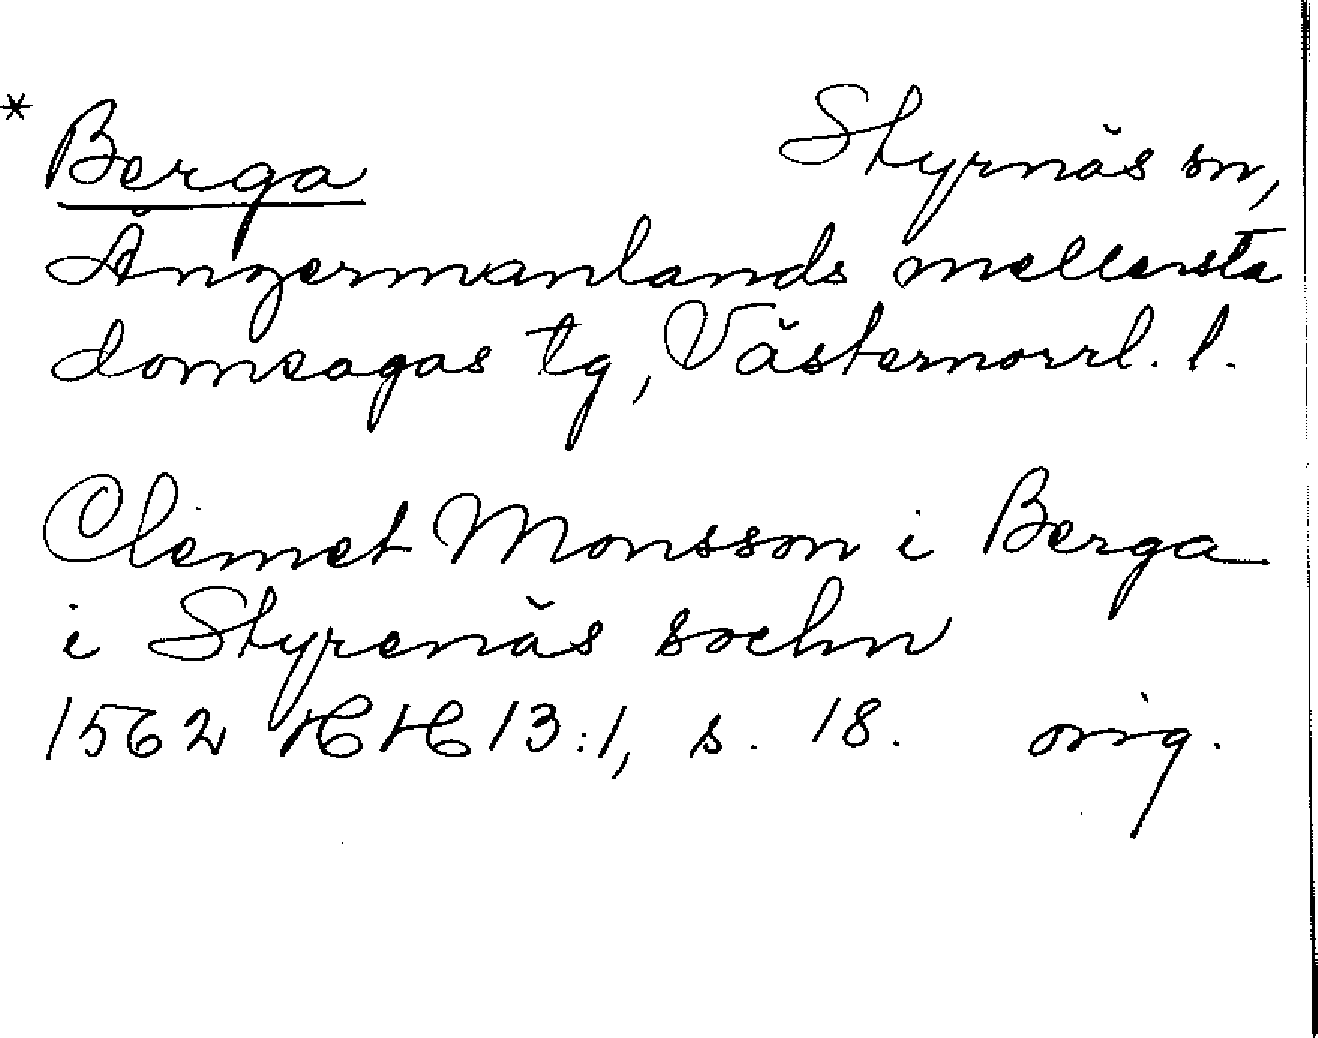 * Berga Styrnäs sn,
Ångermanlands mellersta
domsagas tg, Västernorrl. l.
Clemet Monsson i Berga
i Styrenäs sochn
1562 HH 13:1, s. 18. orig.